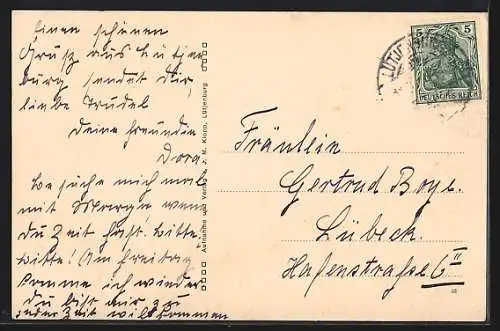 Einen schönen
Gruß aus Lütjen
burg sendet Dir,
liebe Trudel
Deine Freundin
Dora
Besuche mich mal
mit wenn
Du Zeit hast. Bitte,
bitte! Am Freitag
komme ich wieder
Du bist mir zu
jeder Zeit willkommen
Aufnahme und Verlag v. J. M. Klopp, Lütjenburg
5 5
DEUTSCHES REICH
Fräulein
Gertrud Boye.
Lübeck.
Hafenstraße 6 II